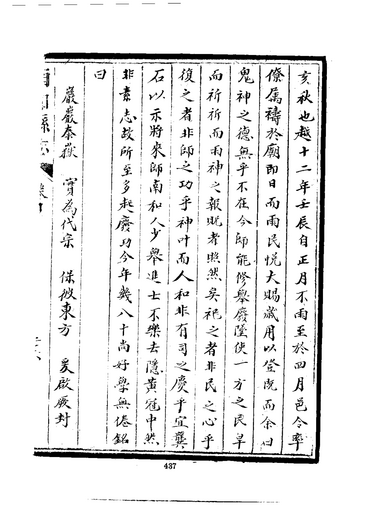 亥秋也越十二年壬辰自正月不雨至於四月邑令率
僚屬禱於廟即日而雨民悅大賜歲用以登既而余曰
鬼神之德無乎不在今師能修舉廢墜使一方之民旱
而祈祈而雨神之報貺者照然矣祀之者非民之心乎
復之者非師之功乎神叶而人和非有司之慶乎宜龔
石以示將來師南和人少舉進士不樂去隱黃冠中然
非素志故所至多起廢功今年幾八十尚好學無倦銘
曰
巖巖泰嶽 實為代宗 保攸東方 爰啟厥封
437